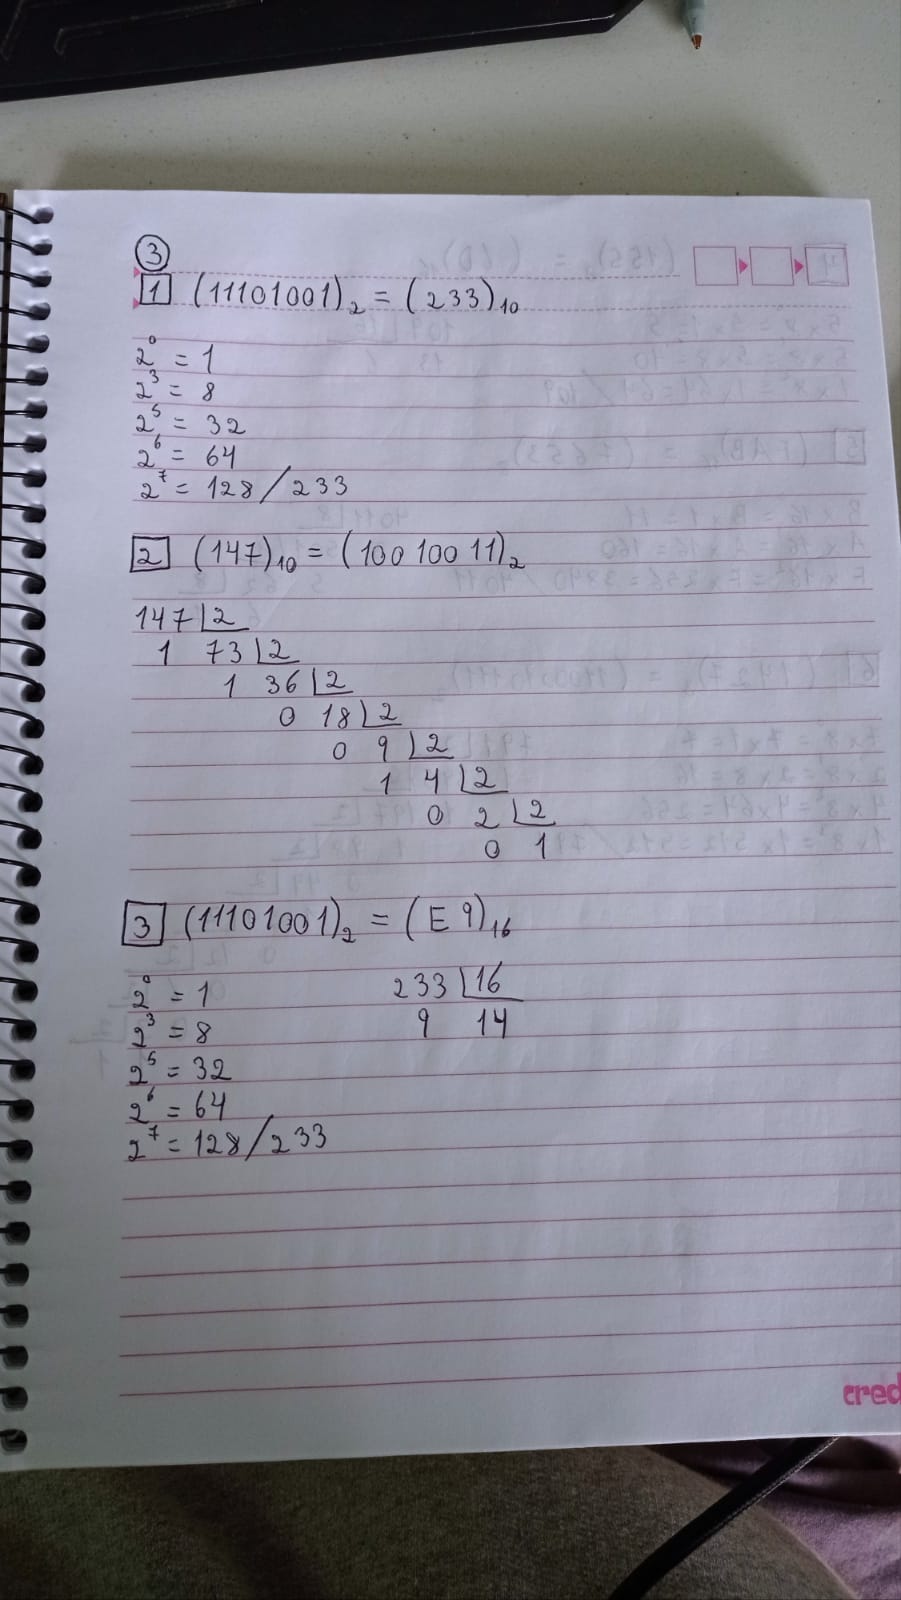 3
1 (11101001)₂ = (233)₁₀
2⁰ = 1
2³ = 8
2⁵ = 32
2⁶ = 64
2⁷ = 128 / 233
2 (147)₁₀ = (10010011)₂
147 | 2
1 73 | 2
1 36 | 2
0 18 | 2
0 9 | 2
1 4 | 2
0 2 | 2
0 1
3 (11101001)₂ = (E9)₁₆
2⁰ = 1 233 | 16
2³ = 8 9 14
2⁵ = 32
2⁶ = 64
2⁷ = 128 / 233
cred